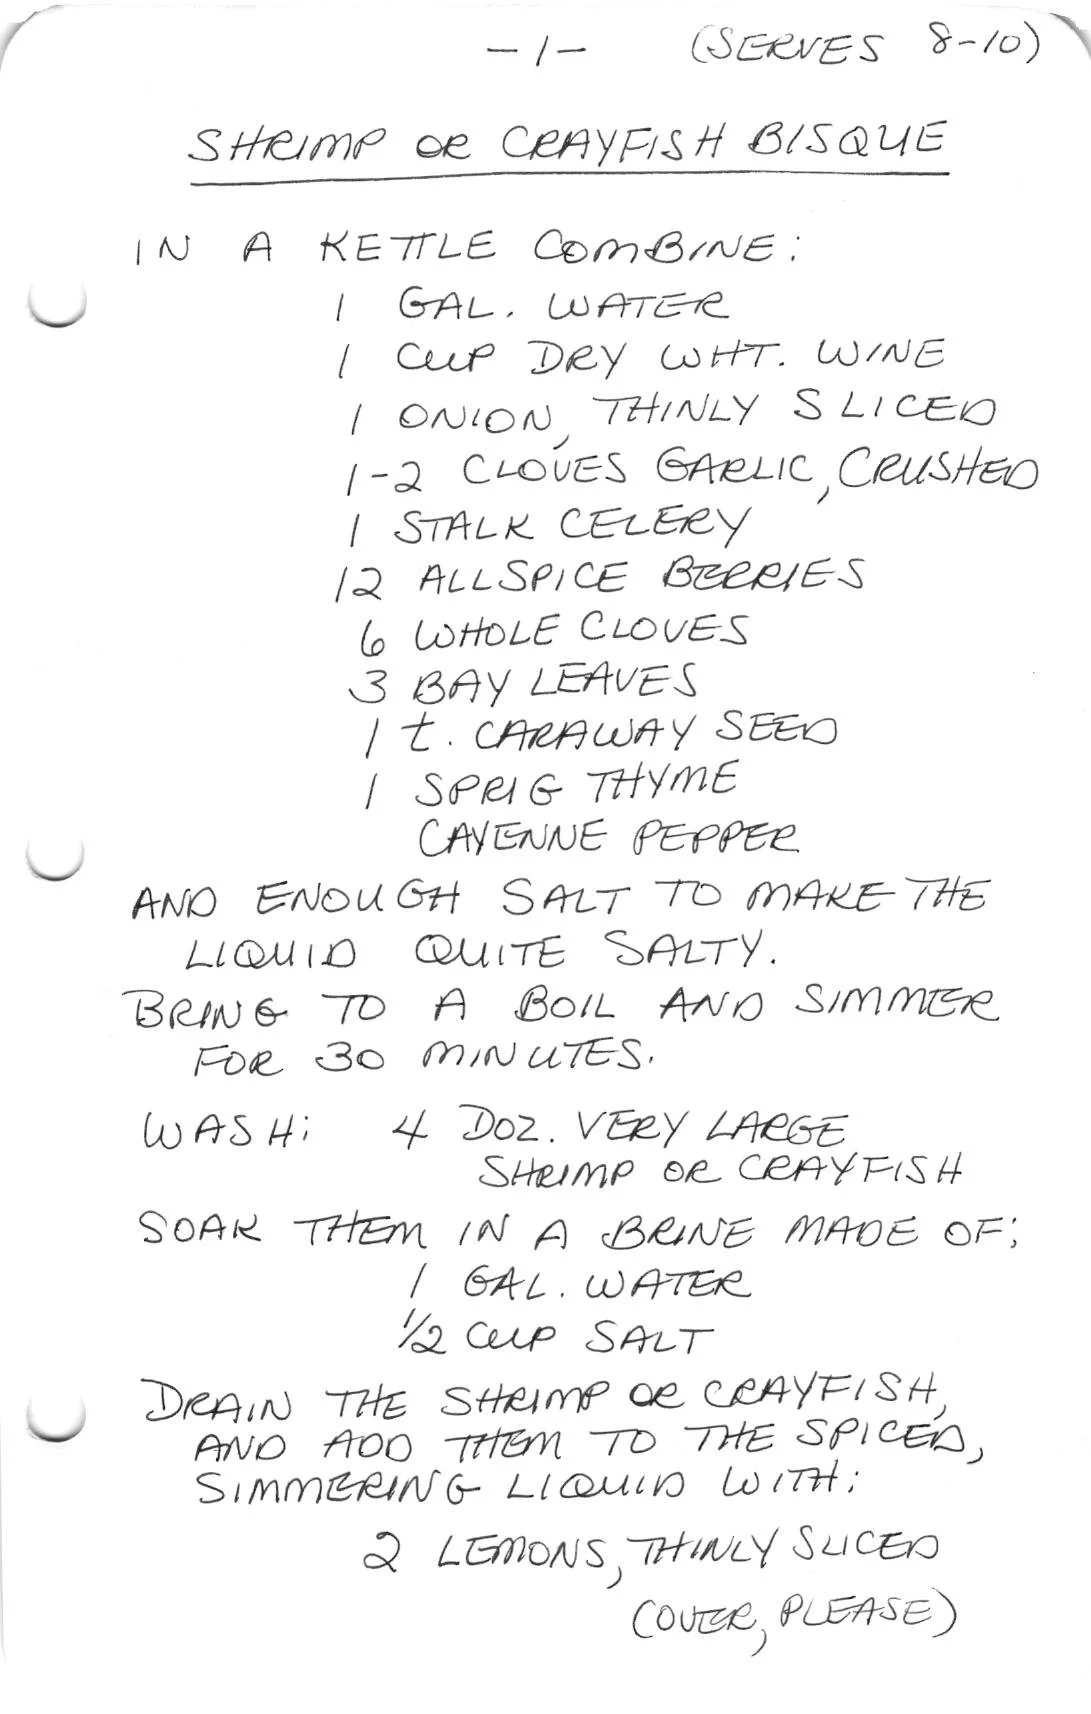 -1- (SERVES 8-10)
SHRIMP OR CRAYFISH BISQUE
IN A KETTLE COMBINE:
1 GAL. WATER
1 CUP DRY WHT. WINE
1 ONION, THINLY SLICED
1-2 CLOVES GARLIC, CRUSHED
1 STALK CELERY
12 ALLSPICE BERRIES
6 WHOLE CLOVES
3 BAY LEAVES
1 t. CARAWAY SEED
1 SPRIG THYME
CAYENNE PEPPER
AND ENOUGH SALT TO MAKE THE
LIQUID QUITE SALTY.
BRING TO A BOIL AND SIMMER
FOR 30 MINUTES.
WASH: 4 DOZ. VERY LARGE
SHRIMP OR CRAYFISH
SOAK THEM IN A BRINE MADE OF:
1 GAL. WATER
1/2 CUP SALT
DRAIN THE SHRIMP OR CRAYFISH,
AND ADD THEM TO THE SPICED,
SIMMERING LIQUID WITH:
2 LEMONS, THINLY SLICED
(OVER, PLEASE)